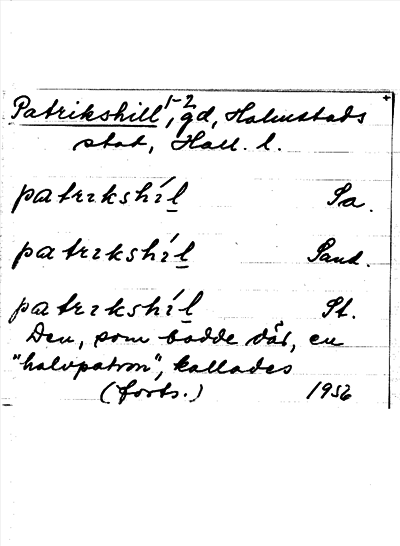 Patrikshill 1-2, gd, Halmstads
stad, Hall. l.
patrıkshíl Sa.
patrıkshíl Sand.
patrıkshíl St.
Den, som bodde där, en
"halvpatron", kallades
(forts.) 1956